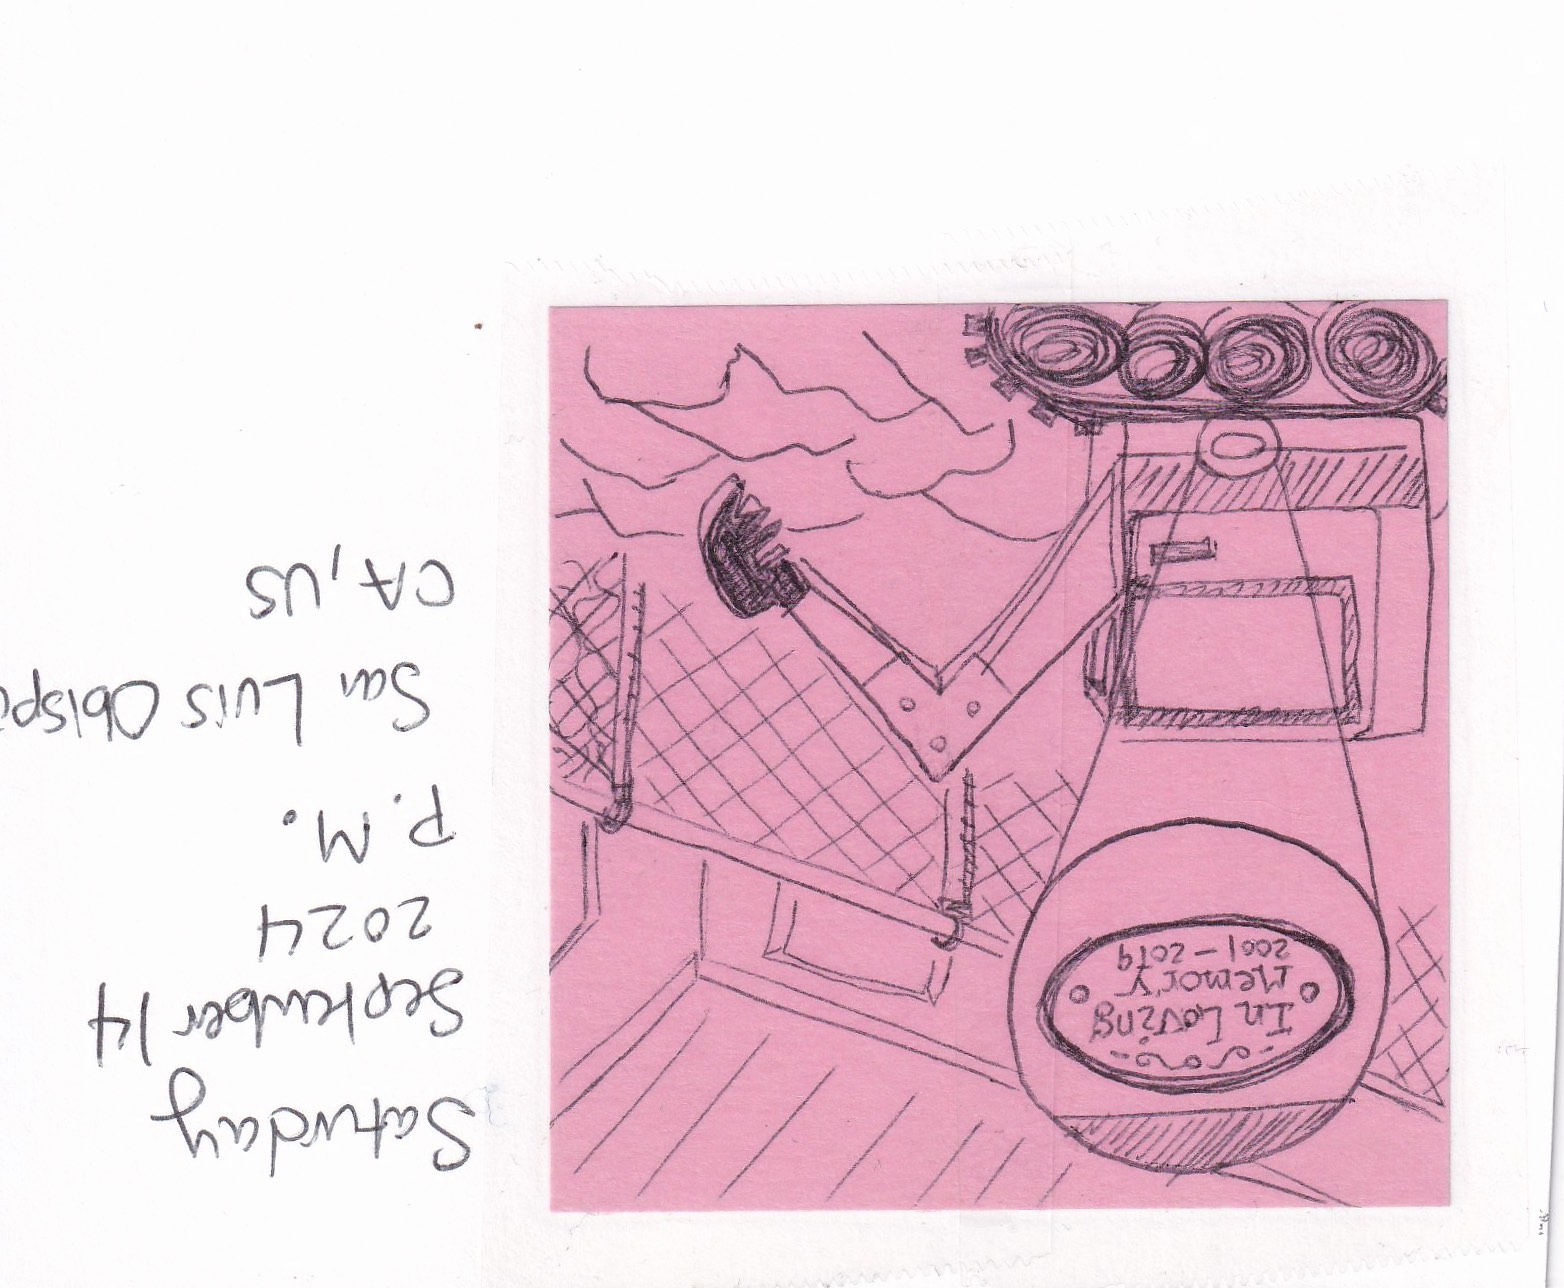 In Loving
Memory
2001-2019
Saturday
September 14
2024
P.M.
San Luis Obispo
CA, US